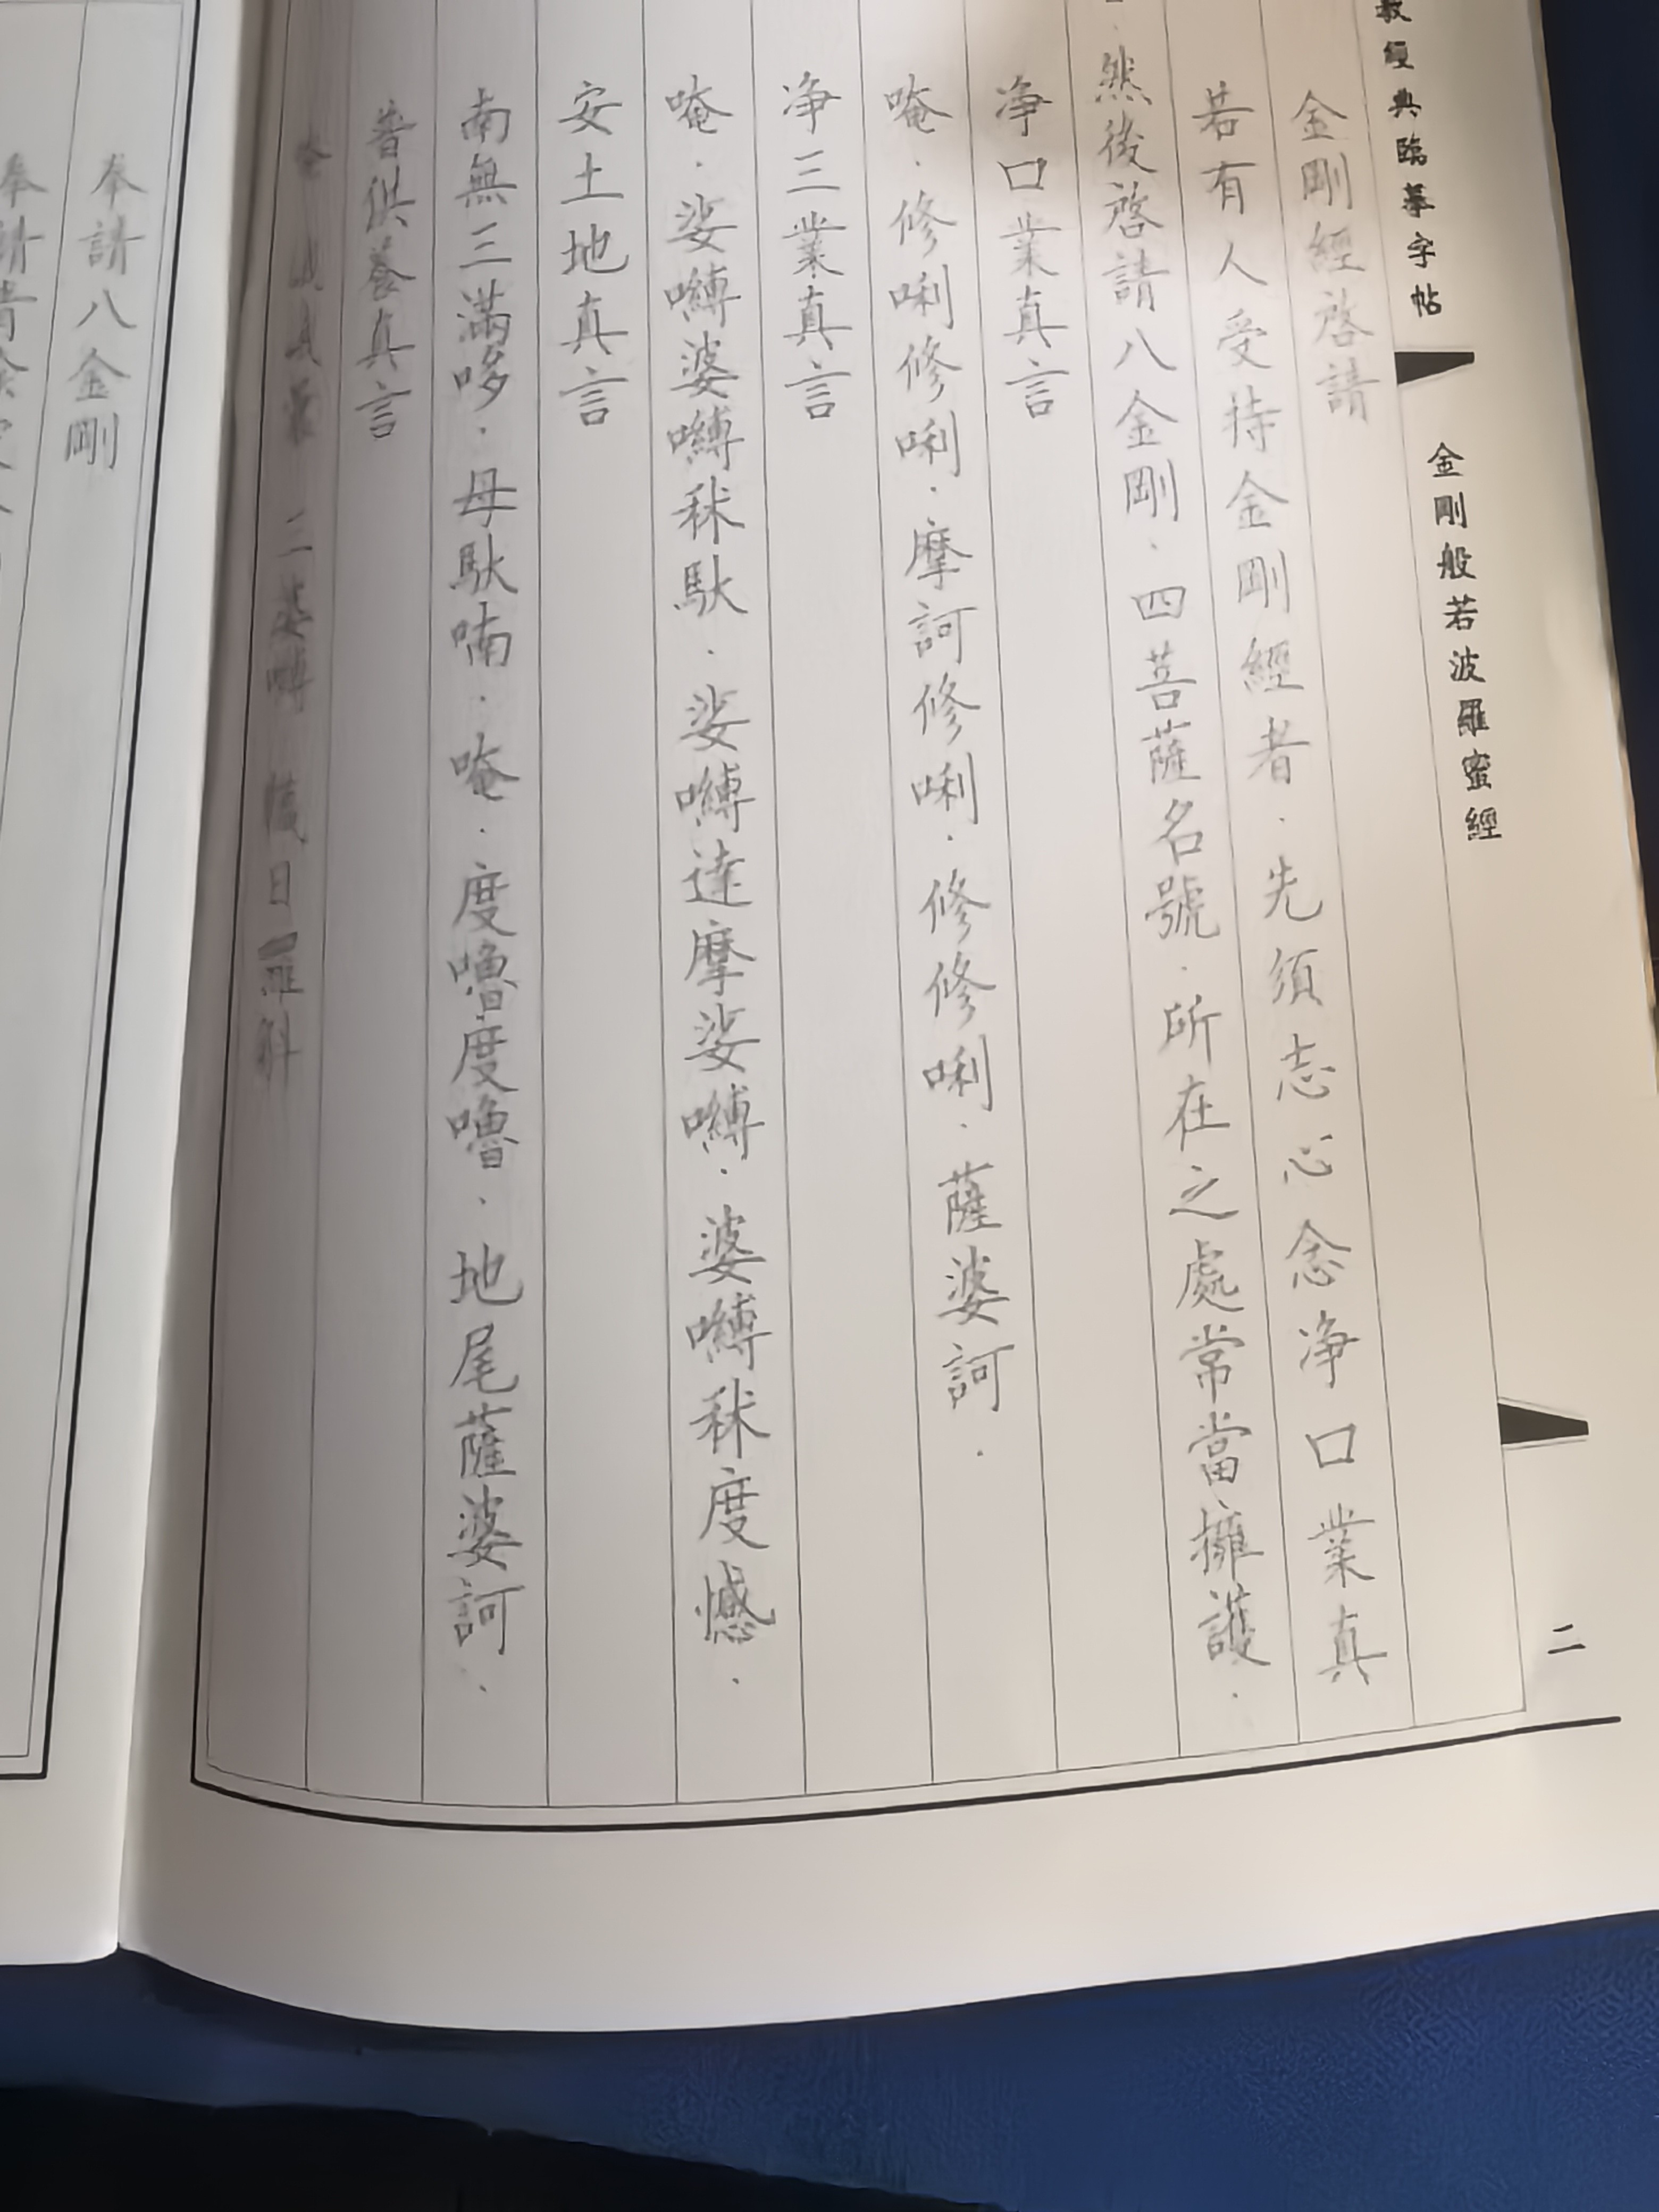 教經典臨摹字帖
金剛般若波羅蜜經
二
金剛經啓請
若有人受持金剛經者·先須志心念净口業真
·然後啓請八金剛·四菩薩名號·所在之處常當擁護·
净口業真言
唵·修唎修唎·摩訶修唎·修修唎·薩婆訶·
净三業真言
唵·娑嚩婆嚩秫馱·娑嚩達摩娑嚩·婆嚩秫度憾·
安土地真言
南無三滿哆·母馱喃·唵·度嚕度嚕·地尾薩婆訶·
普供養真言
三婆嚩 日羅斛
奉請八金剛
奉請